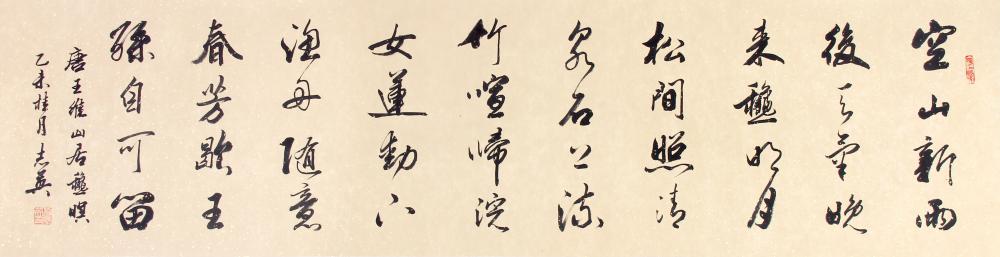 空山新雨
後天氣晚
来龝明月
松間照清
泉石上流
竹喧帰浣
女蓮動下
漁舟随意
春芳歇王
孫自可留
唐王維山居龝暝
乙未桂月志英